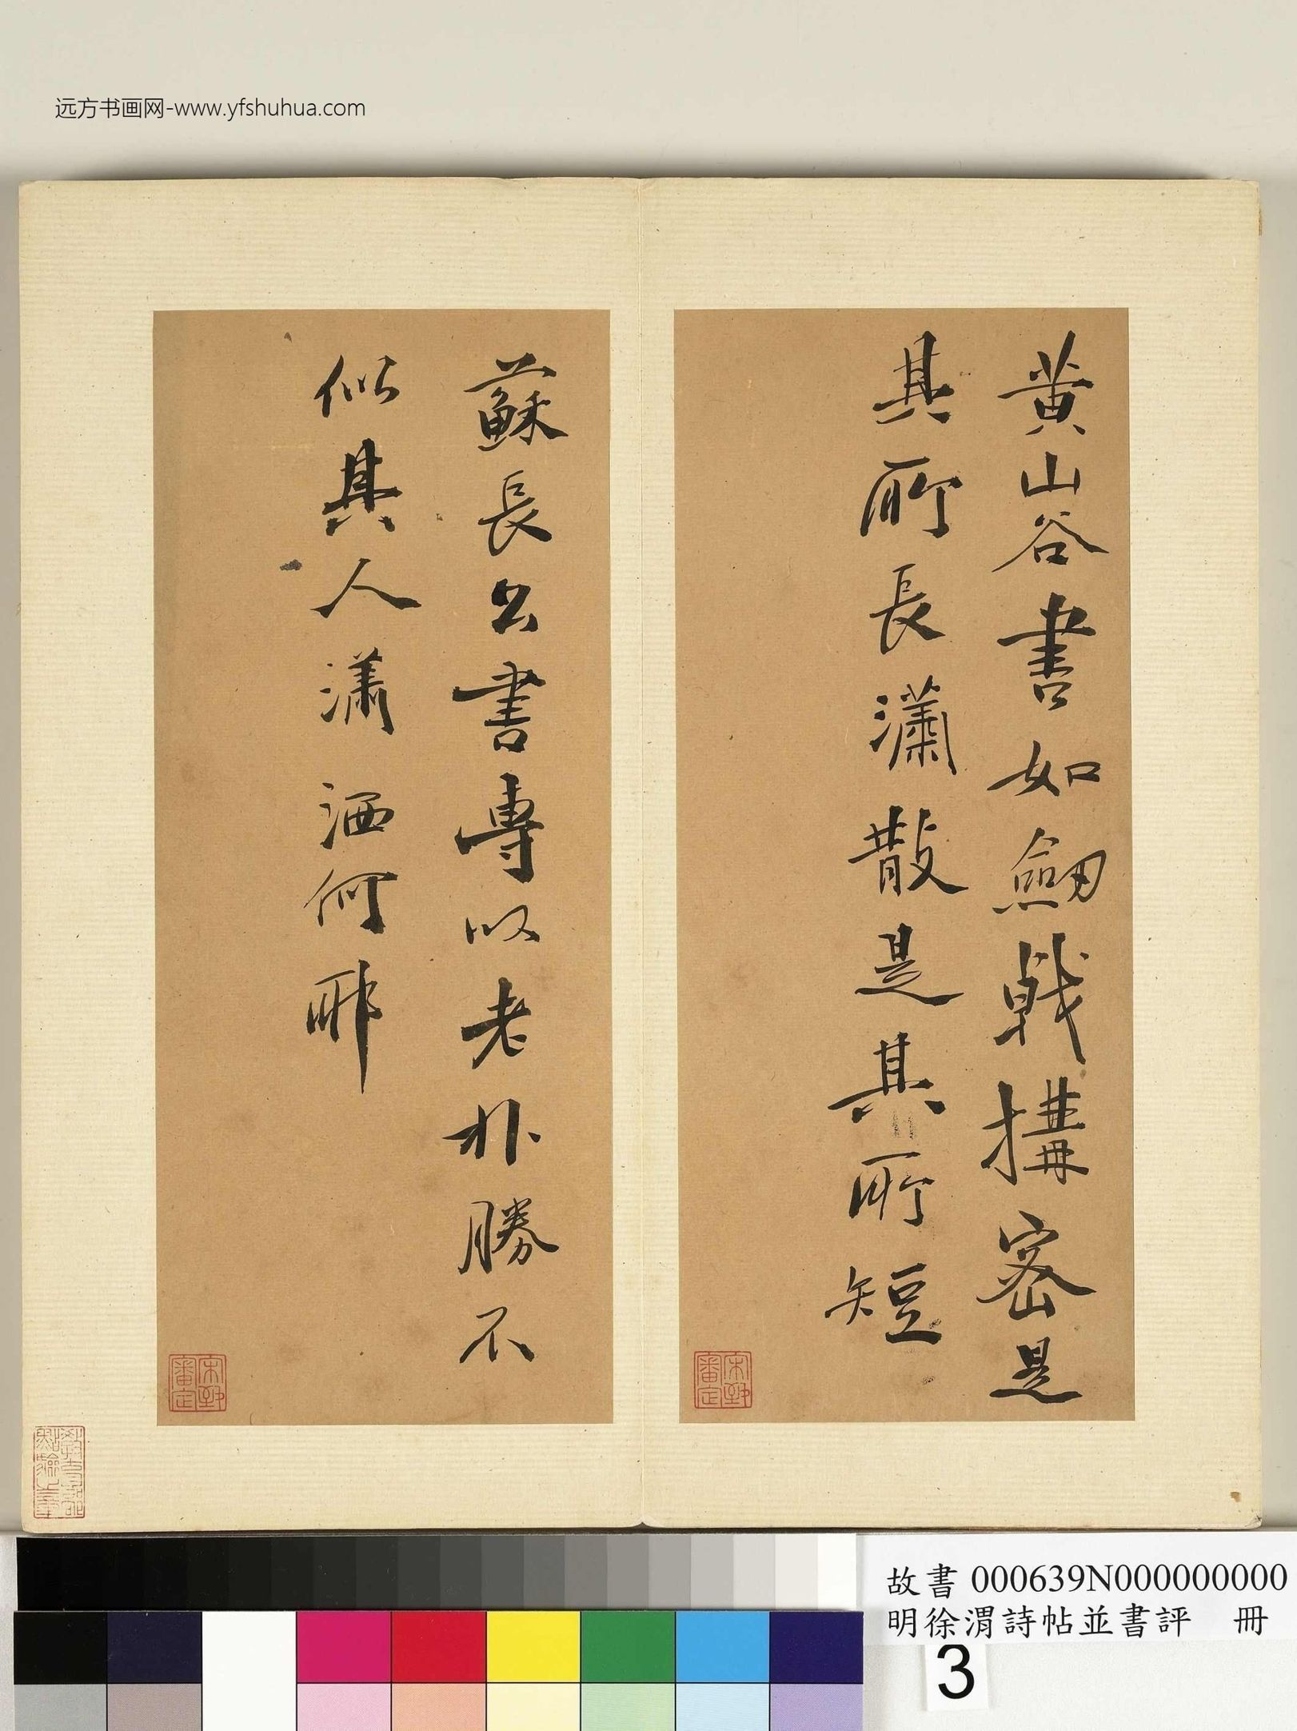 远方书画网-www.yfshuhua.com
黄山谷書如劒戟搆密是
其所長瀟散是其所短
蘇長公書專以老朴勝不
似其人瀟洒何耶
審定
審定
故書 000639N000000000
明徐渭詩帖並書評 冊
3